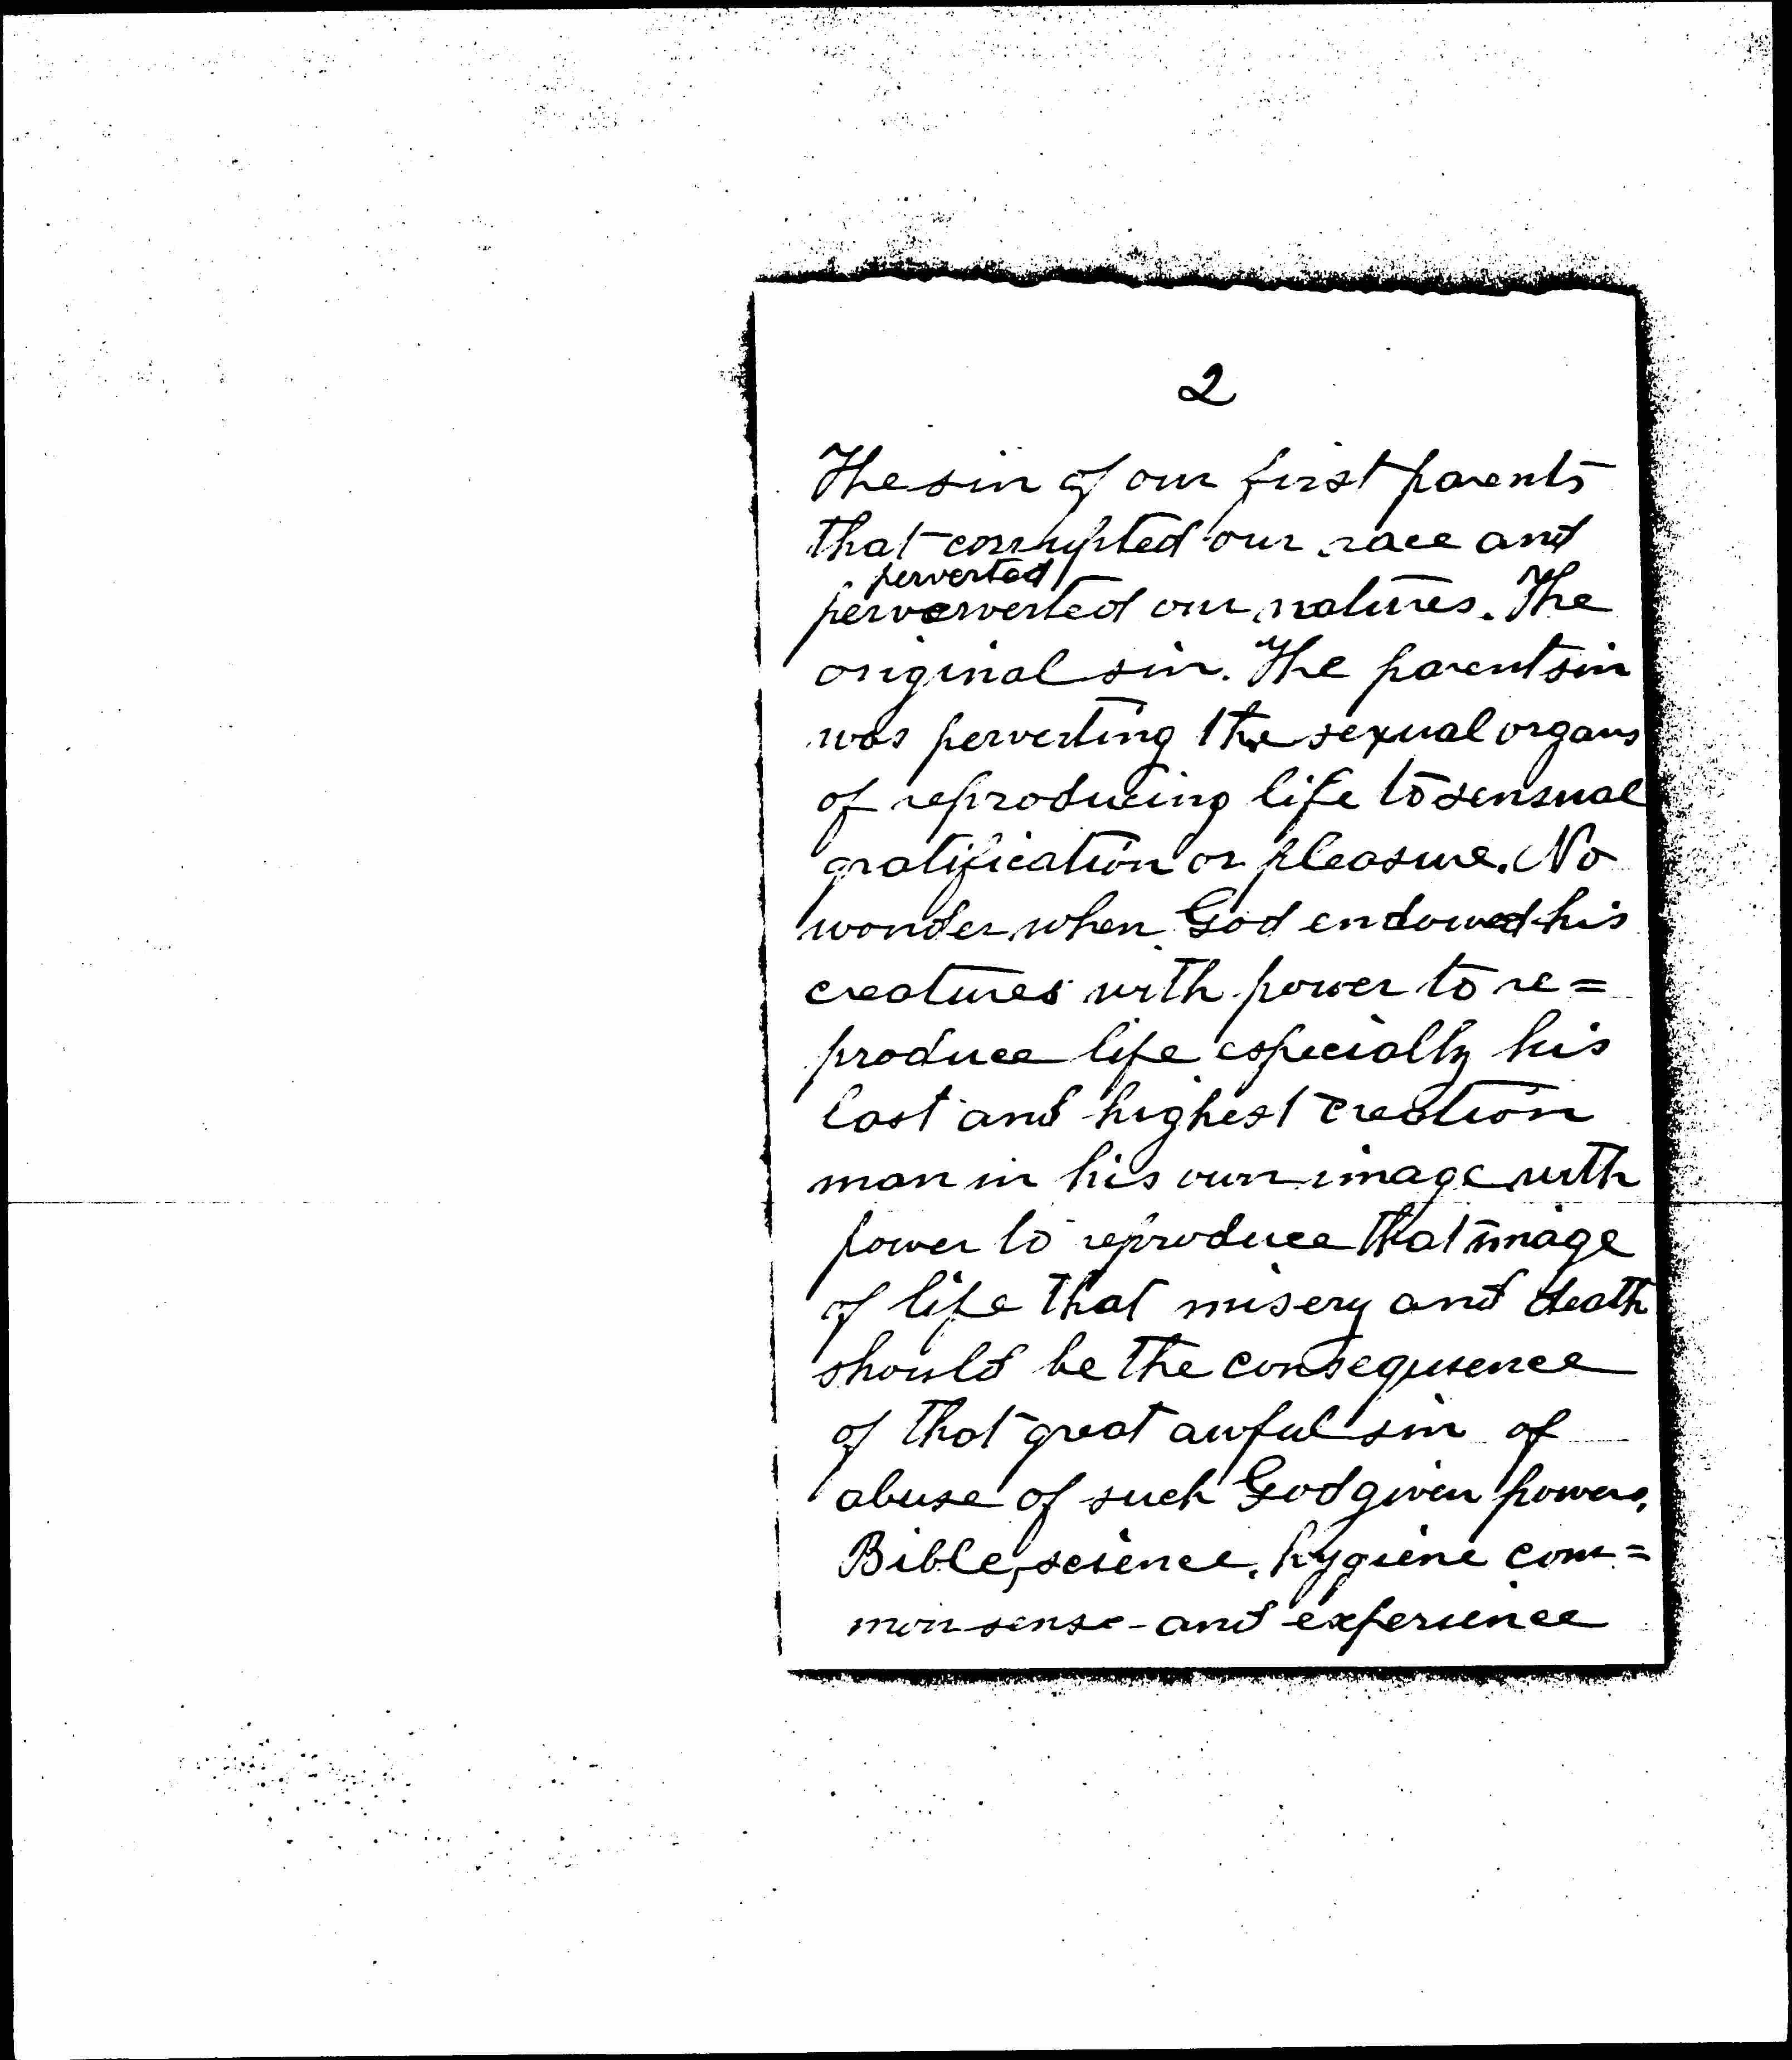 2
The sin of our first parents
that corrupted our race and
perverted
perververted our natures. The
original sin. The parent sin
was perverting the sexual organs
of reproducing life to sensual
gratification or pleasure. No
wonder when God endowed his
creatures with power to re=
produce life especially his
last and highest creation
man in his own image with
power to reproduce that image
of life that misery and death
should be the consequence
of that great awful sin of
abuse of such God given powers.
Bible, science, hygiene com=
mon sense - and experience